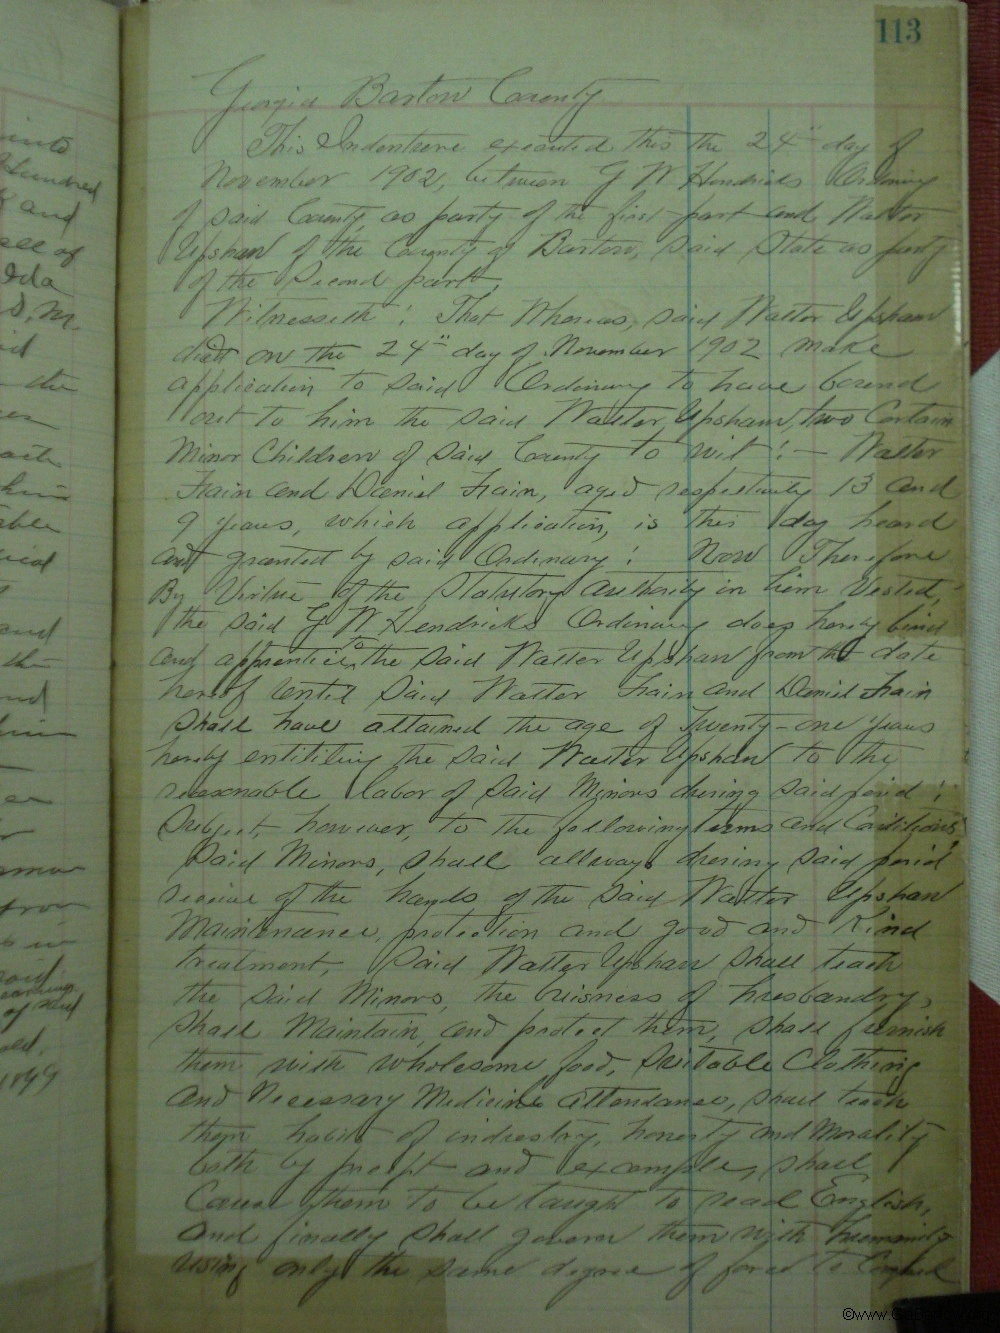 113
Georgia Bartow County
This Indenture executed this the 24" day of
November 1902, between G W Hendricks Ordinary
of said County, as party of the first part and Walter
Upshaw of the County of Bartow, said State as party
of the Second part,
Witnesseth: That Whereas, said Walter Upshaw
did on the 24" day of November 1902 make
application to said Ordinary to have bound
out to him the said Walter Upshaw, two Certain
Minor Children of Said County to wit: - Walter
Frain and Daniel Frain, aged respectively 13 and
9 years, which application, is this day heard
and granted by said Ordinary: Now Therefore
By Virtue of the Statutory authority in him Vested,
the said G W Hendricks Ordinary does hereby bind
and apprentice to the said Walter Upshaw from the date
hereof until Said Walter Frain and Daniel Frain
shall have attained the age of Twenty-one years
hereby entitling the said Walter Upshaw to the
reasonable labor of said Minors during said period;
Subject, however, to the following terms and Conditions
Said Minors, shall allways during said period
receive of the hands of the said Walter Upshaw
Maintenance, protection and good and Kind
treatment, Said Walter Upshaw shall teach
the said Minors, the buisness of husbandry,
shall Maintain, and protect them, shall furnish
them with wholesome food, Suitable Clothing
and Necessary Medicine attendance, shall teach
them habits of industry, honesty and Morality
both by precept and example, shall
Cause them to be taught to read English,
and finally shall govern them with humanity
using only the same degree of force to Compel
into
Hundred
and
all of
Ida
D. M.
the
and
the
and
of said
1899